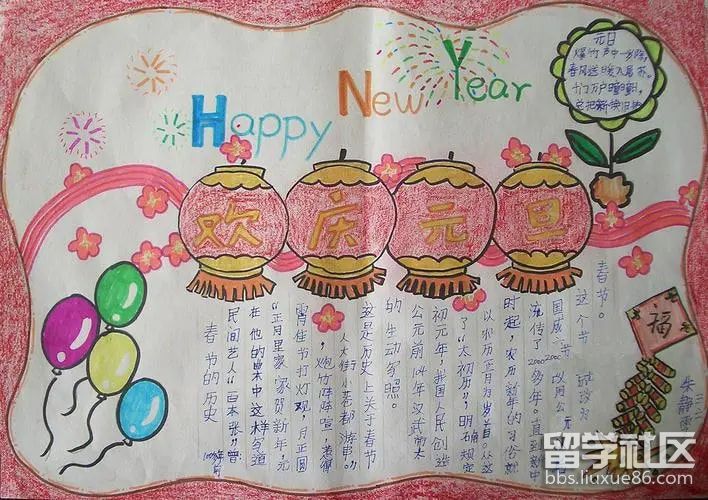 Happy New Year
元日
爆竹声中一岁除,
春风送暖入屠苏。
千门万户曈曈日,
总把新
欢庆元旦
福
春节的历史
民间艺人“百本张”曾
在他的 中这样写道
“正月里家家贺新年,元
宵佳节打灯观,月正圆
,炮竹阵阵喧,惹得
人大街小巷都游串。”
这是历史上关于春节
的生动写照。
公元前104年汉武帝太
初元年,我国人民创造
了“太初历”,明确规定
以农历正月为岁首。从这
时起,农历新年的习俗就
流传了2000多年。直到新中
国成 改用公元
这个节 就改为
春节。
朱静
留学社区
bbs.liuxue86.com